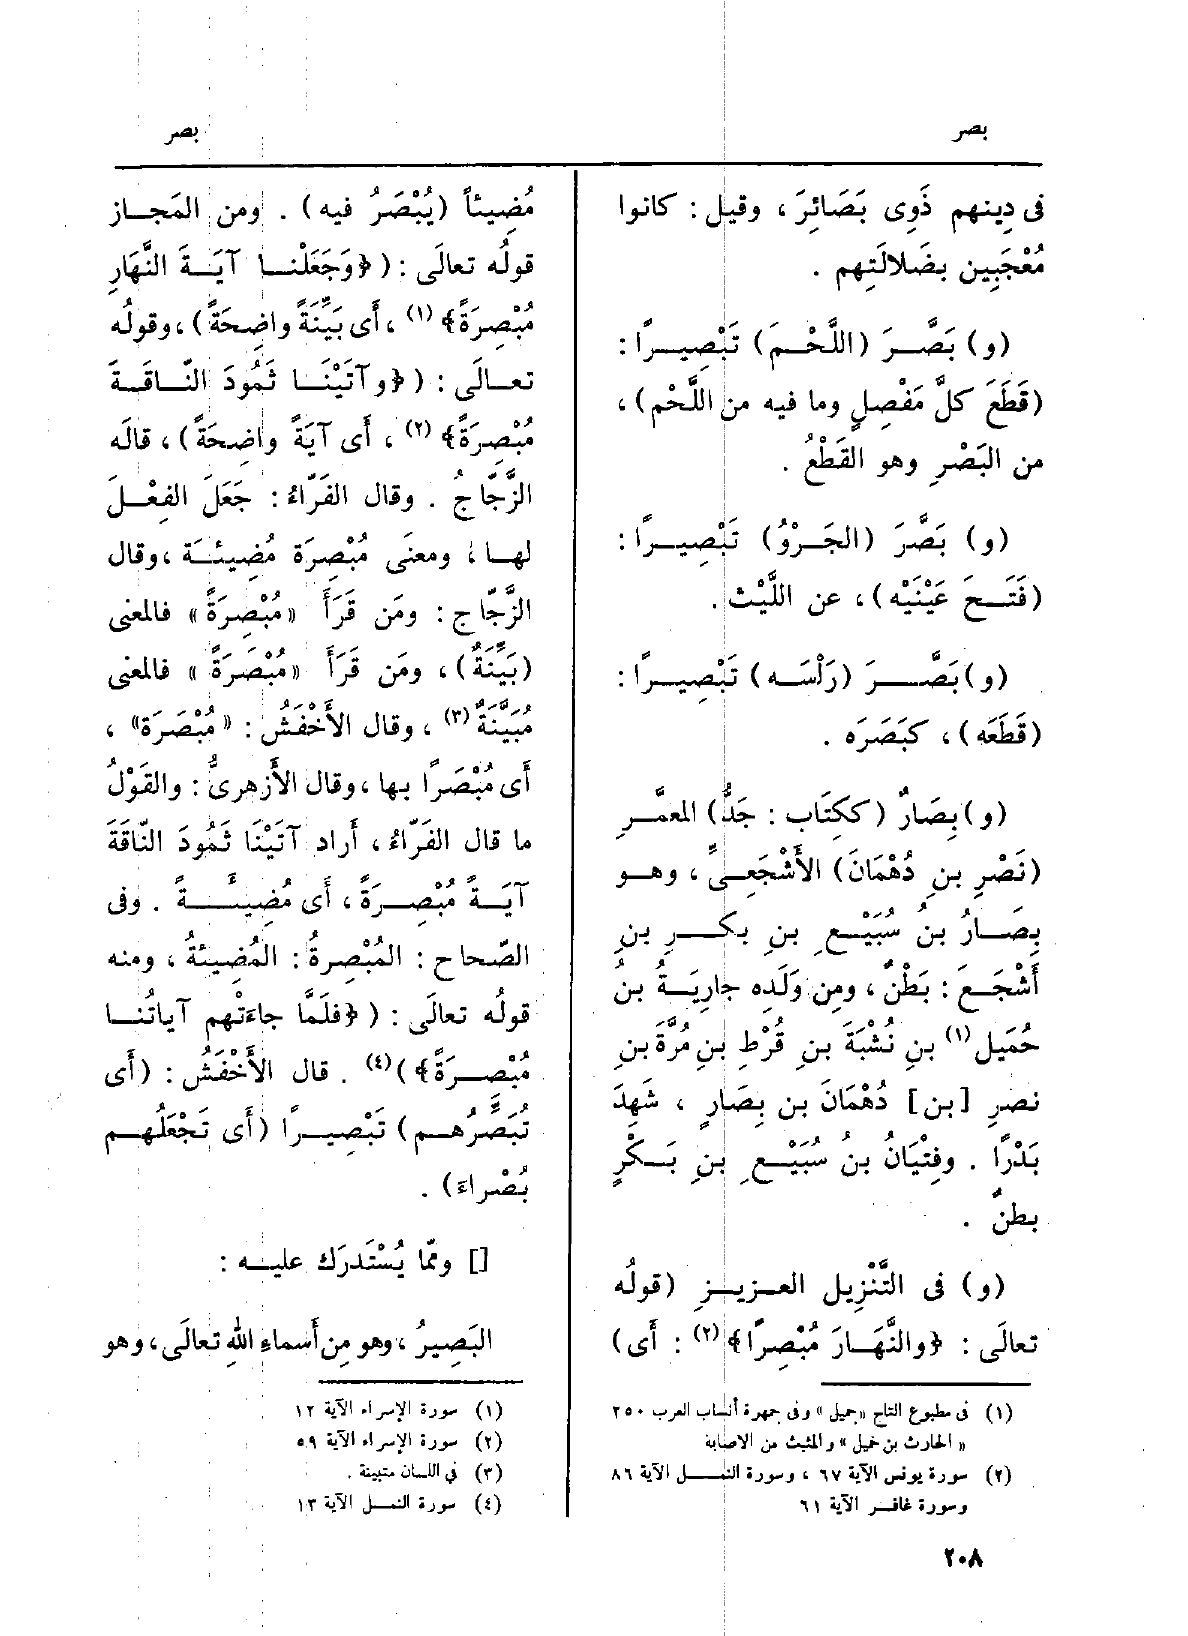 بصر
بصر
فى دِينِهم ذَوِى بَصَائِرَ ، وقيل : كانوا
مُعْجَبِين بضَلالَتِهم .
(و) بَصَّرَ (اللَّحْمَ) تَبْصِيرًا :
(قَطَعَ كلَّ مَفْصِلٍ وما فيه من اللَّحْم) ،
من البَصْرِ وهو القَطْعُ .
(و) بَصَّرَ (الجَرْوُ) تَبْصِيرًا :
(فَتَحَ عَيْنَيْه) ، عن اللَّيْث .
(و) بَصَّرَ (رَأْسَه) تَبْصِيرًا :
(قَطَعَه) ، كبَصَرَه .
(و) بِصَارٌ (ككِتَاب : جَدُّ) المعمَّرِ
(نَصْرِ بنِ دُهْمَانَ) الأَشْجَعِىِّ ، وهو
بِصَارُ بن سُبَيْعِ بنِ بكرِ بنِ
أَشْجَعَ : بَطْنٌ ، ومن وَلَدِه جارِيَةُ بنُ
حُمَيل (١) بنِ نُشْبَةَ بنِ قُرْطِ بنِ مُرَّةَ بنِ
نصرِ [بن] دُهْمَانَ بن بِصَارٍ ، شَهِدَ
بَدْرًا . وفِتْيَانُ بنُ سُبَيْعِ بنِ بَكْرٍ
بطنٌ .
(و) فى التَّنْزِيل العزيزِ (قولُه
تعالَى : ﴿والنَّهَارَ مُبْصِرًا﴾ (٢) : أَى)
(١) فى مطبوع التاج «جميل» وفى جمهرة أنساب العرب ٢٥٠
«الحارث بن خميل» والمثبت من الاصابة
(٢) سورة يونس الآية ٦٧ ، وسورة النمل الآية ٨٦
وسورة غافر الآية ٦١
مُضِيئاً (يُبْصَرُ فيه) . ومن المَجاز
قولُه تعالَى : (﴿وَجَعَلْنا آيَةَ النَّهَارِ
مُبْصِرَةً﴾ (١) ، أَى بَيِّنَةً واضِحَةً) ، وقولُه
تعالَى : (﴿وآتَيْنَا ثَمُودَ النَّاقَةَ
مُبْصِرَةً﴾ (٢) ، أَى آيَةً واضحَةً) ، قالَه
الزَّجّاجُ . وقال الفَرّاءُ : جَعَلَ الفِعْلَ
لها ، ومعنى مُبْصِرَة مُضِيئَة ، وقال
الزَّجّاج : ومَن قَرَأَ «مُبْصِرَةً» فالمعنى
(بَيِّنَةٌ) ، ومَن قَرَأَ «مُبْصَرَةً» فالمعنى
مُبَيَّنَةٌ (٣) ، وقال الأَخْفَشُ : «مُبْصَرَة» ،
أَى مُبْصَرًا بها ، وقال الأَزهرىُّ : والقَوْلُ
ما قال الفَرّاءُ ، أَراد آتَيْنَا ثَمُودَ النّاقَةَ
آيَةً مُبْصِرَةً ، أَى مُضِيئَةً . وفى
الصّحاح : المُبْصِرَةُ : المُضِيئةُ ، ومنه
قولُه تعالَى : (﴿فلَمَّا جاءَتْهم آياتُنا
مُبْصِرَةً﴾) (٤) . قال الأَخْفَشُ : (أَى
تُبَصِّرُهم) تَبْصِيرًا (أَى تَجْعَلُهم
بُصْراءَ) .
[] وممّا يُسْتَدرَك عليه :
البَصِيرُ ، وهو مِن أَسماءِ اللهِ تعالَى ، وهو
(١) سورة الإسراء الآية ١٢
(٢) سورة الإسراء الآية ٥٩
(٣) فى اللسان متبينة .
(٤) سورة النمل الآية ١٣
٢٠٨